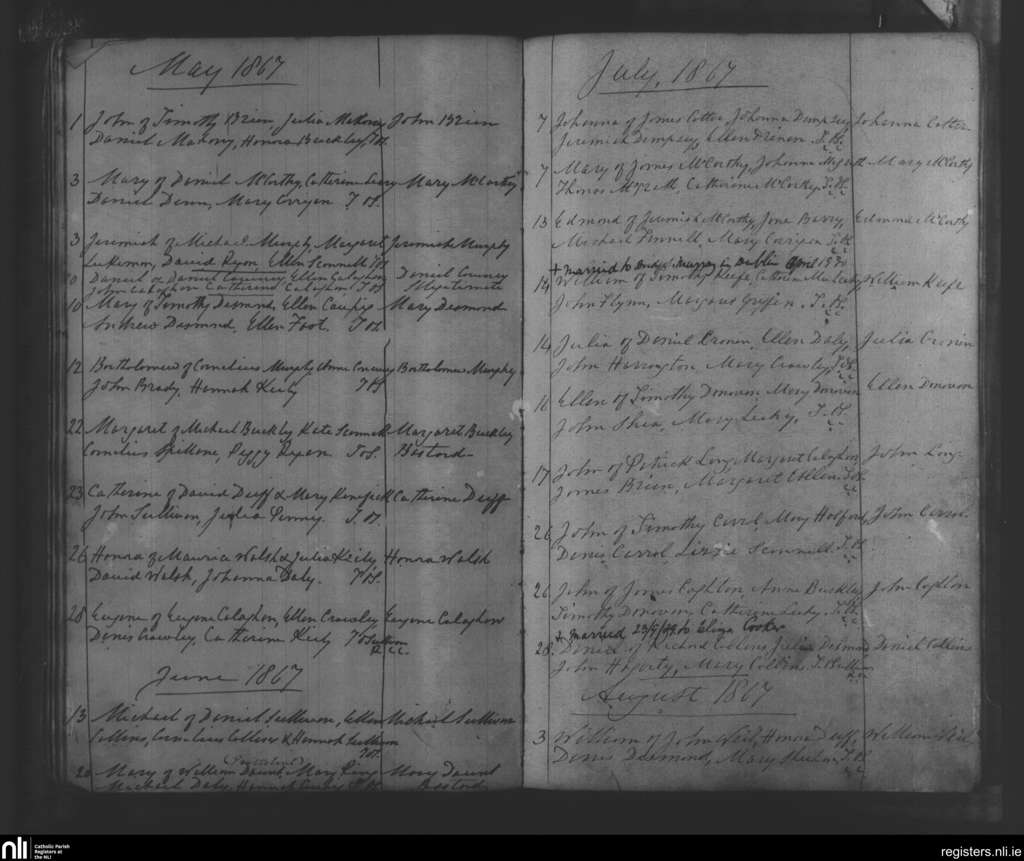 May 1867
1 John of Timothy Brien Julia Mahony John Brien
Daniel Mahony, Honora Buckley, T.H.
3 Mary of Daniel McCarthy, Catherine Leary Mary McCarthy
Daniel Dunn, Mary T H.
3 Jeremiah of Michael Murphy, Margaret Jeremiah Murphy
David Ryan, Ellen Scannell T H
Daniel of Daniel Ellen Calaghan Daniel
John Calaghan Catherine Calaghan T.H Illegitimate
10 Mary of Timothy Desmond, Ellen Mary Desmond
Andrew Desmond, Ellen Foot. T H.
12 Bartholomew of Cornelius Murphy Anne Bartholomew Murphy
John Brady, Hannah Kiely T H
22 Margaret of Michael Buckley Kate Margaret Buckley
Cornelius Spillane, Peggy T.S. Bastard
23 Catherine of David Duff & Mary Catherine Duff
John Sullivan, Julia Penny. T. H.
26 Honra of Maurice Walsh & Julia Kiely Honra Walsh
David Walsh, Johanna Daly. T H.
28 Eugene of Eugene Calaghan, Ellen Crowley Eugene Calaghan
Denis Crowley, Catherine Kiely T Sullivan
R.C.C.
June 1867
13 Michael of Daniel Sullivan, Ellen Michael Sullivan
Collins, Cornelius Collins & Hannah Sullivan
T.H.
20 Mary of William Daunt, Mary King Mary Daunt
Michael Daly, Hannah Bastard
July, 1867
7 Johanna of James Cotter, Johanna Dempsey Johanna Cotter
Jeremiah Dempsey, Ellen T.H.
7 Mary of James McCarthy, Johanna Mary McCarthy
Thomas Catherine McCarthy, T.H.
13 Edmond of Jeremiah McCarthy, Jane Barry, Edmond McCarthy
Michael Mary T.H.
+ married to Murray in Dublin April
14 William of Timothy Keefe, Catherine William Keefe
John Flynn, Margaret Griffin. T. H.
14 Julia of Daniel Cronin, Ellen Daly Julia Cronin
John Harrington, Mary Crowley T.H.
16 Ellen of Timothy Donovan Mary Donovan Ellen Donovan
John Shea, Mary Leahy, T. H.
17 John of Patrick Long Margaret Calaghan John Long
James Brien, Margaret T.H.
26 John of Timothy Carrol Mary Halford, John Carrol.
Denis Carrol Lizzie Scannell T.H.
26 John of James Coghlan, Anne Buckley John Coghlan
Timothy Donovan, Catherine Leahy T.H.
+ Married to Eliza Cooke
28. Daniel of Richard Collins Julia Desmond Daniel Collins
John Hegarty, Mary Collins, T. Sullivan
August 1867
3 William of John Honra Duff, William
Denis Desmond, Mary T.H.
nli Catholic Parish
Registers at
the NLI
registers.nli.ie